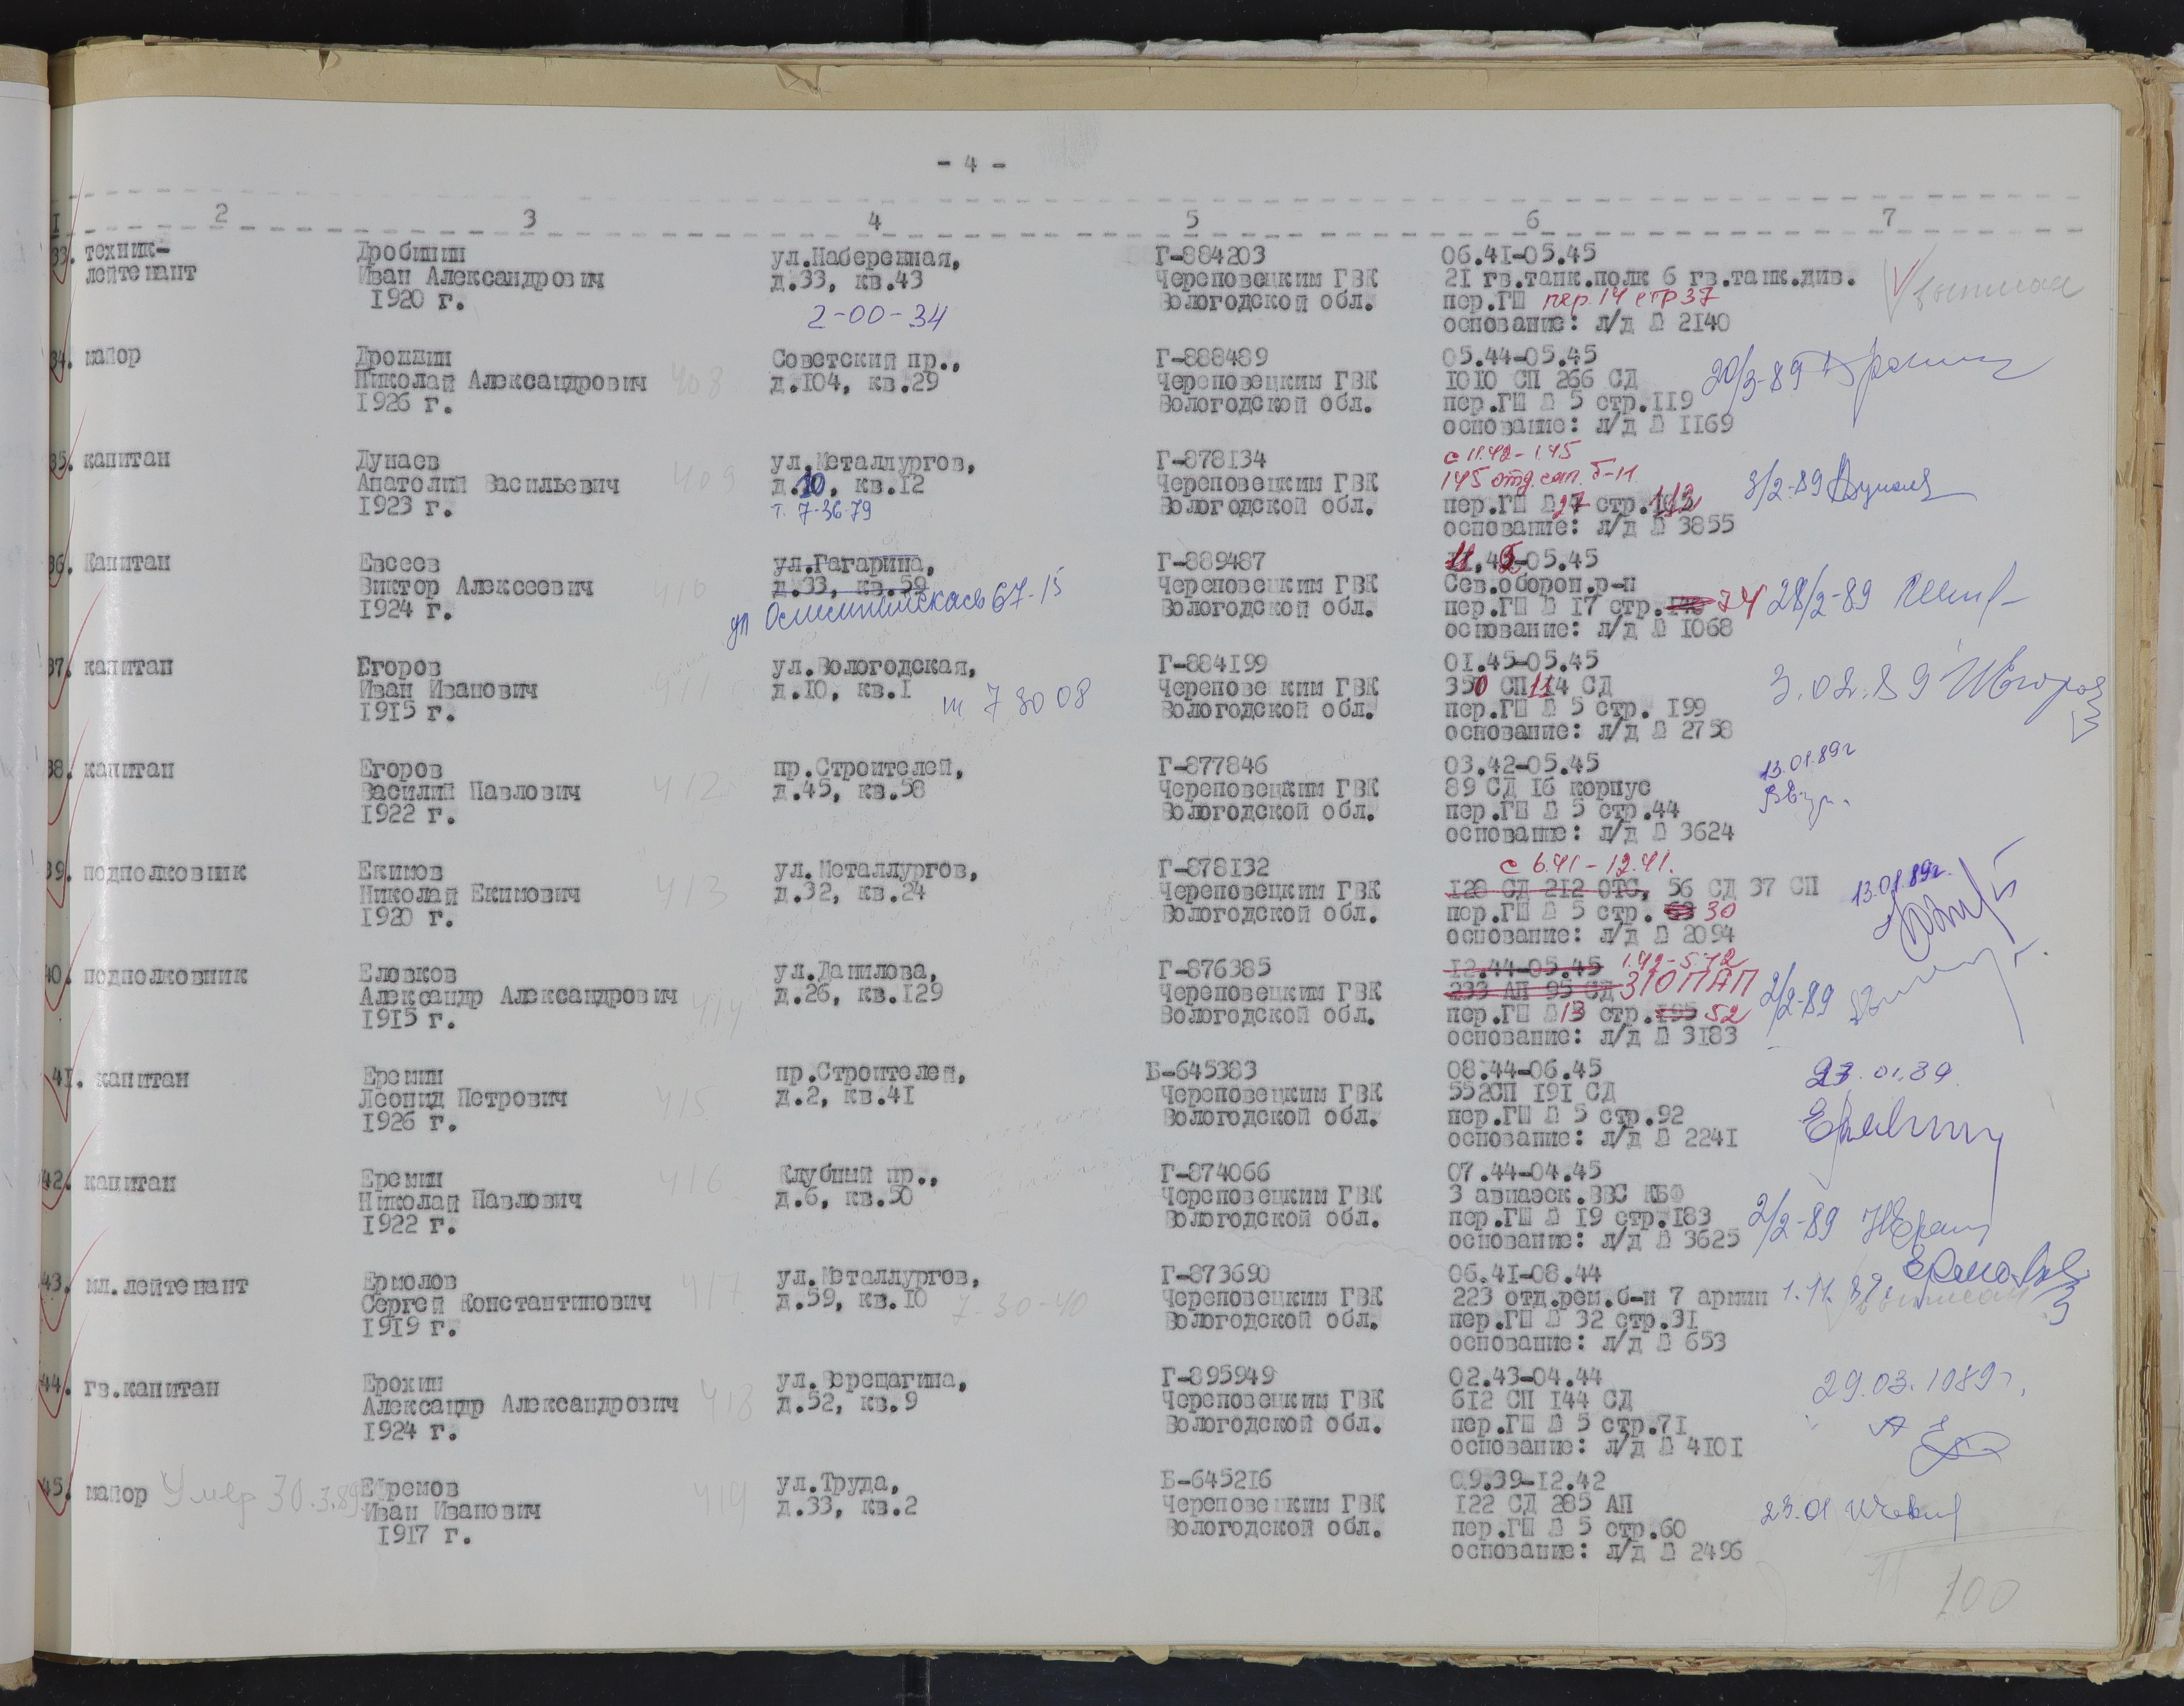 - 4 -
I 2 3 4 5 6 7
33. техник-лейтенант
Дробинин
Иван Александрович
1920 г.
ул.Набережная,
д.33, кв.43
2-00-34
Г-884203
Череповецким ГВК
Вологодской обл.
06.41-05.45
21 гв.танк.полк 6 гв.танк.див.
пер.ГШ пер.14 стр 37
основание: л/д № 2140
34. майор
Дронин
Николай Александрович
1926 г.
408
Советский пр.,
д.104, кв.29
Г-888489
Череповецким ГВК
Вологодской обл.
05.44-05.45
1010 СП 266 СД
пер.ГШ № 5 стр.119
основание: л/д № 1169
20/3-89
35. капитан
Дунаев
Анатолий Васильевич
1923 г.
409
ул.Металлургов,
д.10, кв.12
т. 7-36-79
Г-878134
Череповецким ГВК
Вологодской обл.
с 11.42-1.45
145 отд сап. б-н
пер.ГШ № 27 стр.112
основание: л/д № 3855
3/2-89
36. Капитан
Евсеев
Виктор Алексеевич
1924 г.
410
ул.Гагарина,
д.33, кв.59
ул Олимпийская 67-15
Г-889487
Череповецким ГВК
Вологодской обл.
11.45-05.45
Сев.оборон.р-н
пер.ГШ № 17 стр. 74
основание: л/д № 1068
28/2-89
37. капитан
Егоров
Иван Иванович
1915 г.
411
ул.Вологодская,
д.10, кв.1
т 7 30 08
Г-884199
Череповецким ГВК
Вологодской обл.
01.45-05.45
350 СП 114 СД
пер.ГШ № 5 стр. 199
основание: л/д № 2758
3.02.89 ИЕгоров
38. капитан
Егоров
Василий Павлович
1922 г.
412
пр.Строителей,
д.45, кв.58
Г-877846
Череповецким ГВК
Вологодской обл.
03.42-05.45
89 СД 16 корпус
пер.ГШ № 5 стр.44
основание: л/д № 3624
13.01.89г
39. подполковник
Екимов
Николай Екимович
1920 г.
413
ул.Металлургов,
д.32, кв.24
Г-878132
Череповецким ГВК
Вологодской обл.
с 6.41 - 12.41.
128 СД 212 ОТС, 56 СД 37 СП
пер.ГШ № 5 стр. 30
основание: л/д № 2094
13.01.89г.
40. подполковник
Еловков
Александр Александрович
1915 г.
414
ул.Данилова,
д.26, кв.129
Г-876385
Череповецким ГВК
Вологодской обл.
12.44-05.45 1.42-5.42
233 АП 95 СД 310 ПАП
пер.ГШ № 13 стр.195 52
основание: л/д № 3183
2/2-89
41. капитан
Еремин
Леонид Петрович
1926 г.
415
пр.Строителей,
д.2, кв.41
Б-645383
Череповецким ГВК
Вологодской обл.
08.44-06.45
552СП 191 СД
пер.ГШ № 5 стр.92
основание: л/д № 2241
23.01.89.
42. капитан
Еремин
Николай Павлович
1922 г.
416
Клубный пр.,
д.6, кв.50
Г-874066
Череповецким ГВК
Вологодской обл.
07.44-04.45
3 авиаэск.ВВС КБФ
пер.ГШ № 19 стр.183
основание: л/д № 3625
2/2-89
43. мл.лейтенант
Ермолов
Сергей Константинович
1919 г.
417
ул.Металлургов,
д.59, кв.10
7-30-40
Г-873690
Череповецким ГВК
Вологодской обл.
06.41-08.44
223 отд.рем.б-н 7 армии
пер.ГШ № 32 стр.31
основание: л/д № 653
1.11.89г.
44. гв.капитан
Ерохин
Александр Александрович
1924 г.
418
ул.Верещагина,
д.52, кв.9
Г-895949
Череповецким ГВК
Вологодской обл.
02.43-04.44
612 СП 144 СД
пер.ГШ № 5 стр.71
основание: л/д № 4101
29.03.1989г.
45. майор Умер 30.3.89
Ефремов
Иван Иванович
1917 г.
419
ул.Труда,
д.33, кв.2
Б-645216
Череповецким ГВК
Вологодской обл.
09.39-12.42
122 СД 285 АП
пер.ГШ № 5 стр.60
основание: л/д № 2496
23.01
100